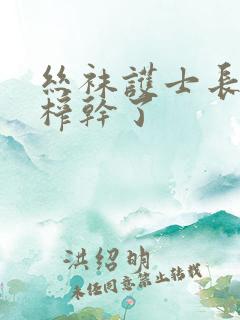 絲袜護士長
榨幹了
洪紹明
未经同意禁止转载